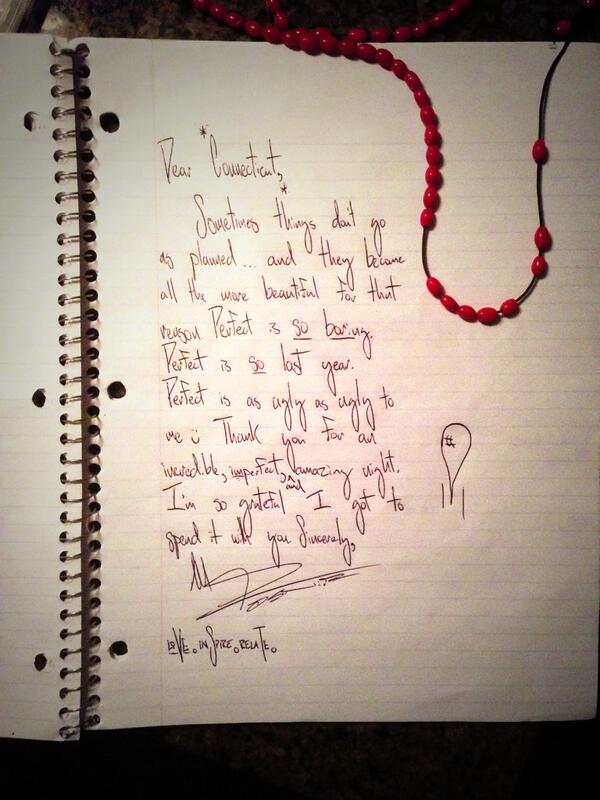 Dear *Connecticut,*
Sometimes things don't go
as planned... and they become
all the more beautiful for that
reason Perfect is so boring.
Perfect is so last year.
Perfect is as ugly as ugly to
me :) Thank you for an
incredible, imperfect, and amazing night.
I'm so grateful I got to
spend it with you Sincerely,
LOVE. INSPIRE. RELATE.
#